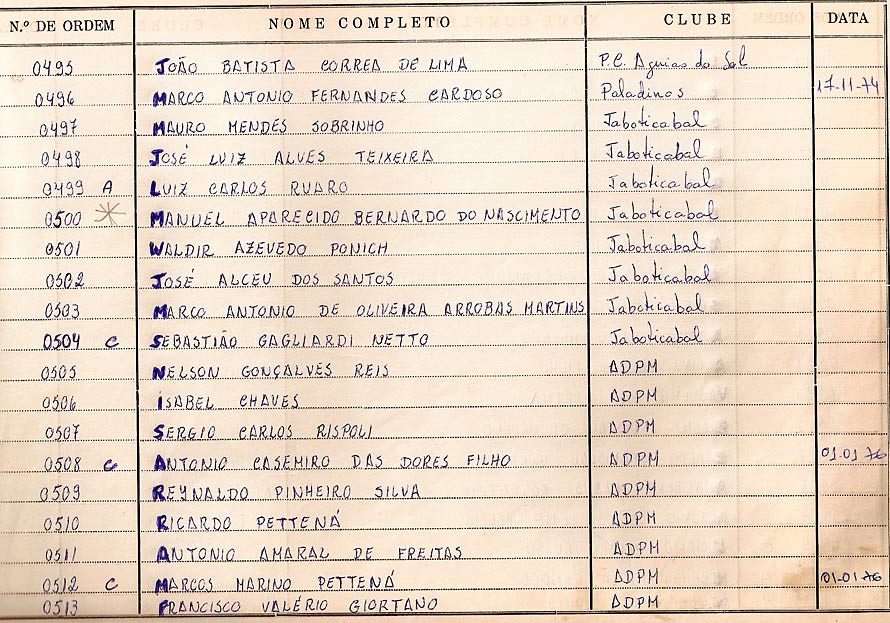 N.º DE ORDEM NOME COMPLETO CLUBE DATA
0495 JOÃO BATISTA CORREA DE LIMA P.C. Aguias do Sol
0496 MARCO ANTONIO FERNANDES CARDOSO Paladinos 17-11-74
0497 MAURO MENDES SOBRINHO Jaboticabal
0498 JOSÉ LUIZ ALVES TEIXEIRA Jaboticabal
0499 A LUIZ CARLOS RUARO Jaboticabal
0500 MANUEL APARECIDO BERNARDO DO NASCIMENTO Jaboticabal
0501 WALDIR AZEVEDO PONICH Jaboticabal
0502 JOSÉ ALCEU DOS SANTOS Jaboticabal
0503 MARCO ANTONIO DE OLIVEIRA ARROBAS MARTINS Jaboticabal
0504 C SEBASTIÃO GAGLIARDI NETTO Jaboticabal
0505 NELSON GONÇALVES REIS ADPM
0506 ISABEL CHAVES ADPM
0507 SERGIO CARLOS RISPOLI ADPM
0508 C ANTONIO CASEMIRO DAS DORES FILHO ADPM 01.01 76
0509 REYNALDO PINHEIRO SILVA ADPM
0510 RICARDO PETTENÁ ADPM
0511 ANTONIO AMARAL DE FREITAS ADPM
0512 C MARCOS MARINO PETTENÁ ADPM 01-01-76
0513 FRANCISCO VALÉRIO GIORTANO ADPM